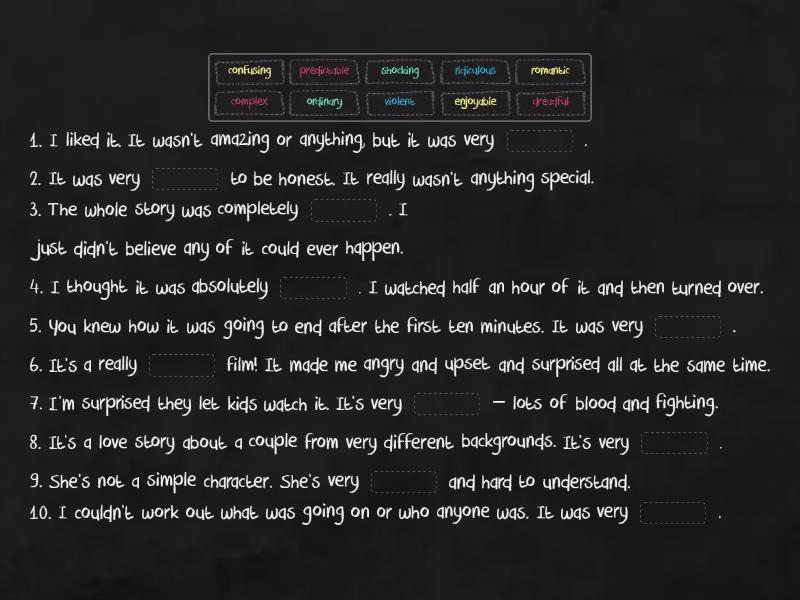 confusing predictable shocking ridiculous romantic
complex ordinary violent enjoyable dreadful
1. I liked it. It wasn't amazing or anything, but it was very .
2. It was very to be honest. It really wasn't anything special.
3. The whole story was completely . I
just didn't believe any of it could ever happen.
4. I thought it was absolutely . I watched half an hour of it and then turned over.
5. You knew how it was going to end after the first ten minutes. It was very .
6. It's a really film! It made me angry and upset and surprised all at the same time.
7. I'm surprised they let kids watch it. It's very – lots of blood and fighting.
8. It's a love story about a couple from very different backgrounds. It's very .
9. She's not a simple character. She's very and hard to understand.
10. I couldn't work out what was going on or who anyone was. It was very .